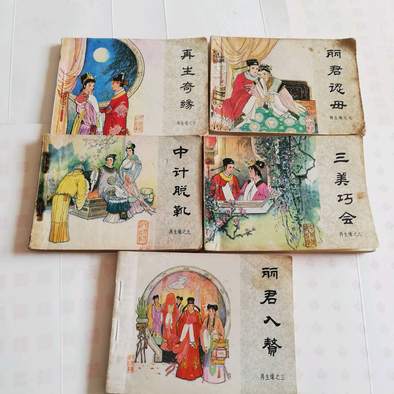 再生奇缘
丽君认母
再生缘之七
中计脱靴
再生缘之九
三美巧会
再生缘之八
丽君入赘
再生缘之三